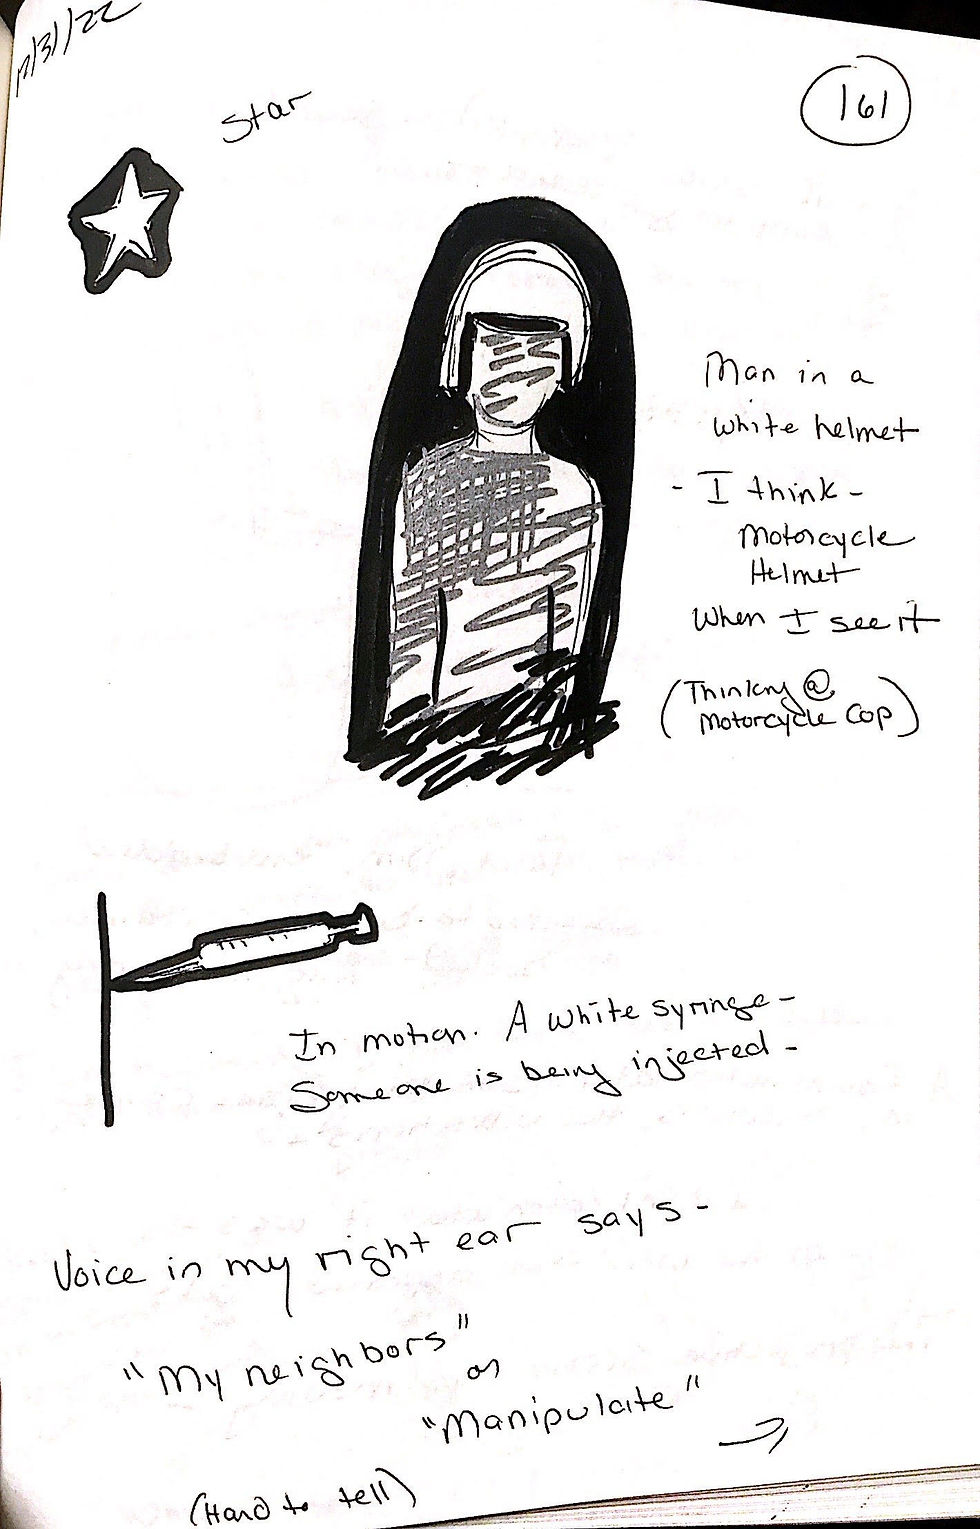 12/31/22
161
Star
Man in a
white helmet
- I think -
Motorcycle
Helmet
When I see it
(Thinking @
Motorcycle Cop)
In motion. A white syringe -
Someone is being injected -
Voice in my right ear says -
"My neighbors"
or
"Manipulate"
(Hard to tell)